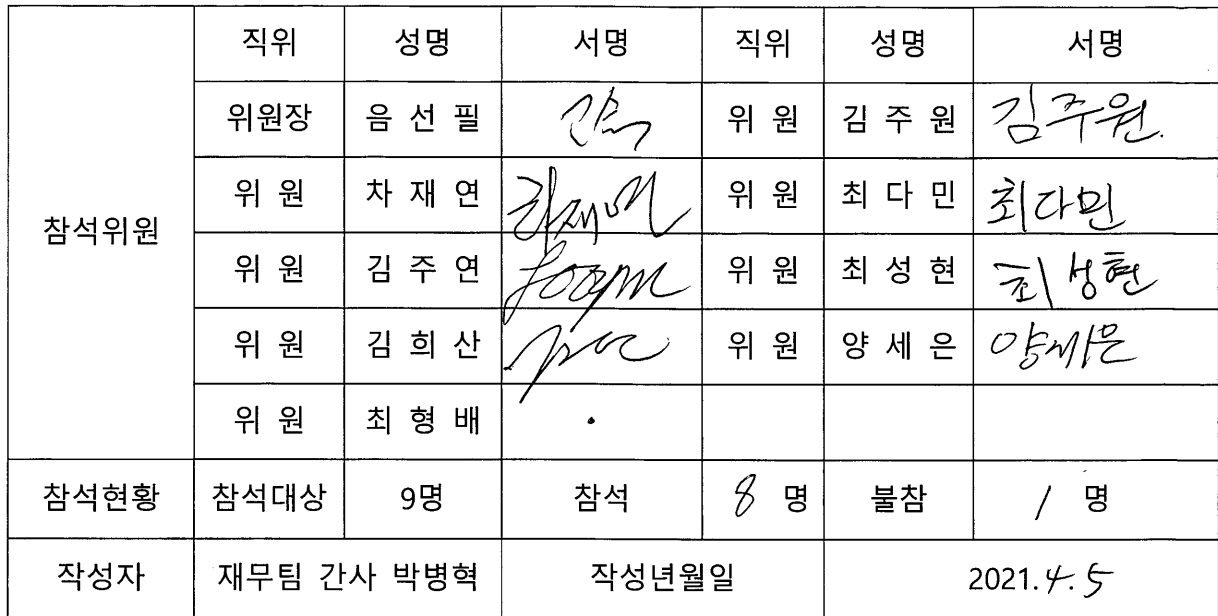 직위 성명 서명 직위 성명 서명
위원장 음 선 필 위 원 김 주 원 김주원
참석위원 위 원 차 재 연 차재연 위 원 최 다 민 최다민
위 원 김 주 연 위 원 최 성 현 최성현
위 원 김 희 산 위 원 양 세 은 양세은
위 원 최 형 배
참석현황 참석대상 9명 참석 8 명 불참 1 명
작성자 재무팀 간사 박병혁 작성년월일 2021.4.5